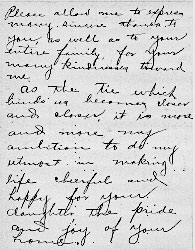 Please allow me to express
my sincere thanks to
you, as well as to your
entire family, for your
many kindnesses toward
me.
As the tie which
binds us becomes closer
and closer, it is more
and more my
ambition to do my
utmost in making
life cheerful and
happy for your
daughter, the pride
and joy of your
home.